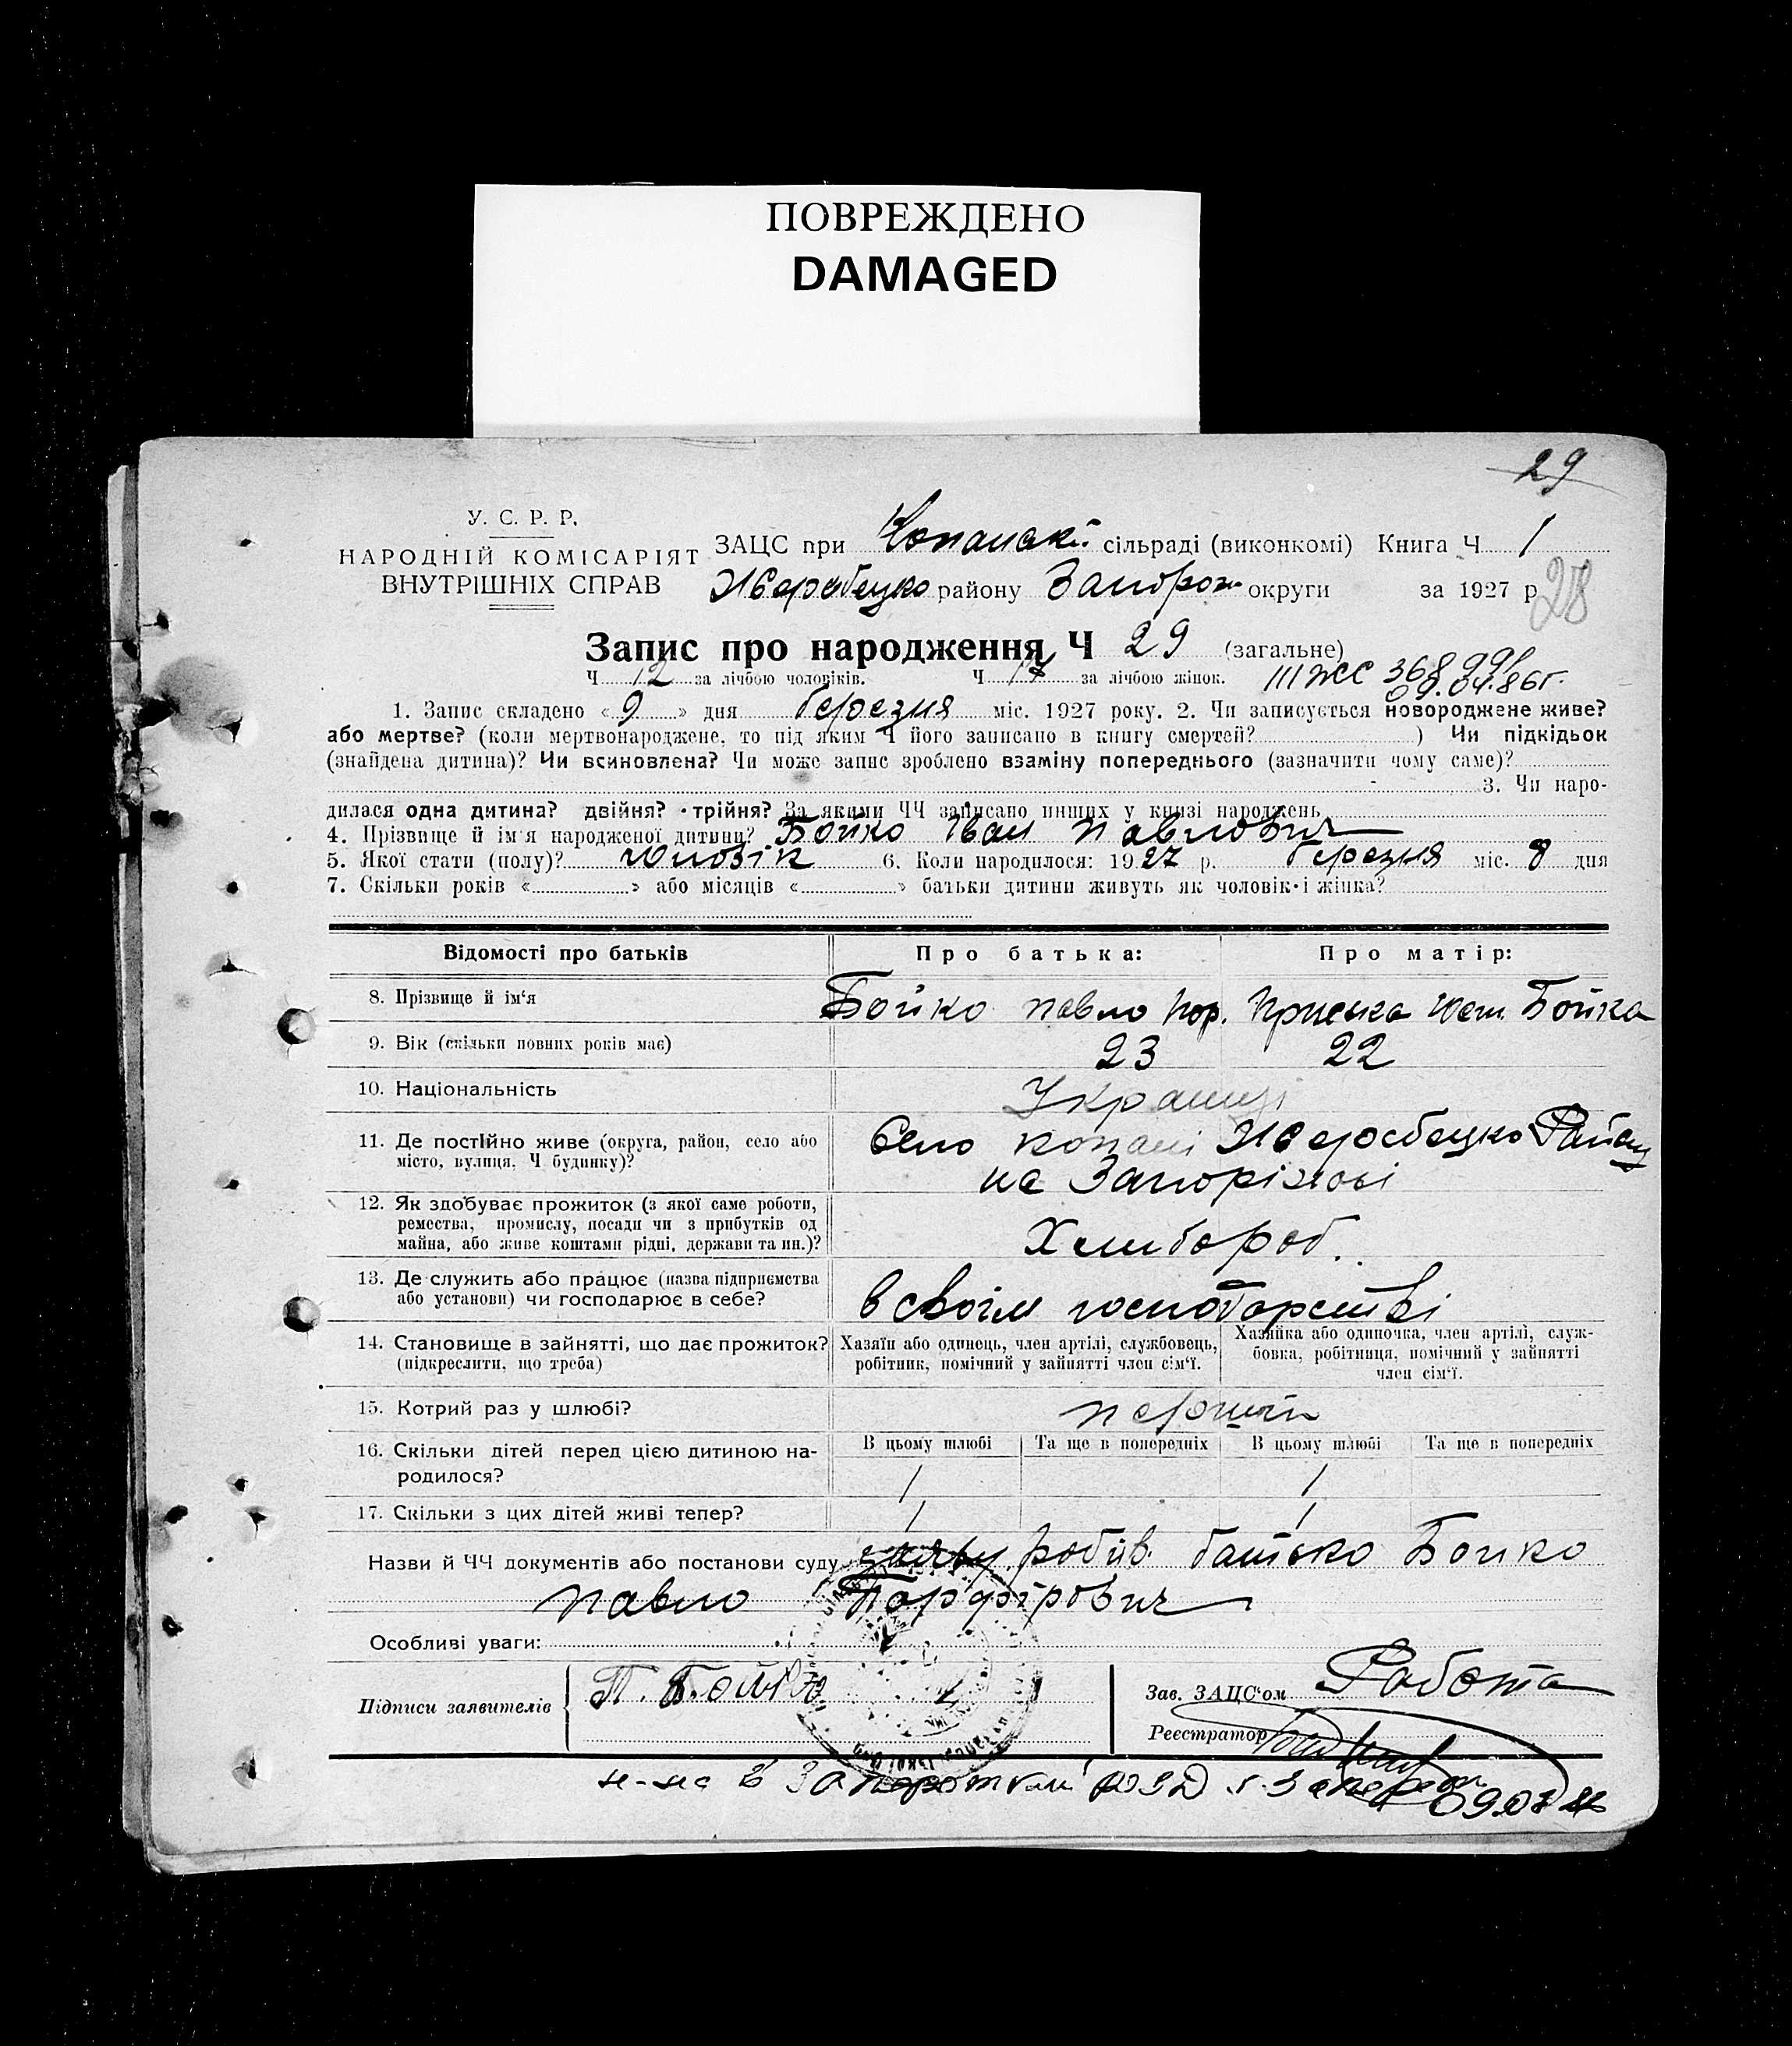 ПОВРЕЖДЕНО
DAMAGED
29
У. С. Р. Р.
НАРОДНІЙ КОМІСАРІЯТ
ВНУТРІШНІХ СПРАВ
ЗАЦС при Копанські сільраді (виконкомі) Книга Ч 1
Жеребецко району Запорож округи за 1927 р
28
Запис про народження Ч 29 (загальне)
Ч 12 за лічбою чоловіків. Ч 17 за лічбою жінок. III ЖС 368
09.04.86г.
1. Запис складено « 9 » дня березня міс. 1927 року. 2. Чи записується новороджене живе?
або мертве? (коли мертвонароджене, то під яким Ч його записано в книгу смертей? ) Чи підкідьок
(знайдена дитина)? Чи всиновлена? Чи може запис зроблено взаміну попереднього (зазначити чому саме)?
3. Чи наро-
дилася одна дитина? двійня? трійня? За якими ЧЧ записано инших у книзі народжень
4. Прізвище й ім'я народженої дитини? Бойко Іван Павлович
5. Якої стати (полу)? чоловік 6. Коли народилося: 1927 р. березня міс. 8 дня
7. Скільки років « » або місяців « » батьки дитини живуть як чоловік і жінка?
Відомості про батьків Про батька: Про матір:
8. Прізвище й ім'я Бойко павло пор. Приська Бойка
9. Вік (скільки повних років має) 23 22
10. Національність Украинці
11. Де постійно живе (округа, район, село або
місто, вулиця, Ч будинку)? Село копані Жеребецко Району
на Запоріжжі
12. Як здобуває прожиток (з якої саме роботи,
ремества, промислу, посади чи з прибутків од
майна, або живе коштами рідні, держави та ин.)? Хлибороб.
13. Де служить або працює (назва підприємства
або установи) чи господарює в себе? в своїм господарстві
14. Становище в зайнятті, що дає прожиток?
(підкреслити, що треба)
Хазяїн або одинець, член артілі, службовець,
робітник, помічний у зайнятті член сім'ї.
Хазяйка або одиночка, член артілі, служ-
бовка, робітниця, помічний у зайнятті
член сім'ї.
15. Котрий раз у шлюбі? перший
16. Скільки дітей перед цією дитиною на-
родилося?
В цьому шлюбі Та ще в попередніх В цьому шлюбі Та ще в попередніх
1 1
17. Скільки з цих дітей живі тепер? 1 1
Назви й ЧЧ документів або постанови суду заяву робив батько Бойко
павло Порфірович
Особливі уваги:
Підписи заявителів П. Бойко
Зав. ЗАЦС'ом Работа
Реєстратор